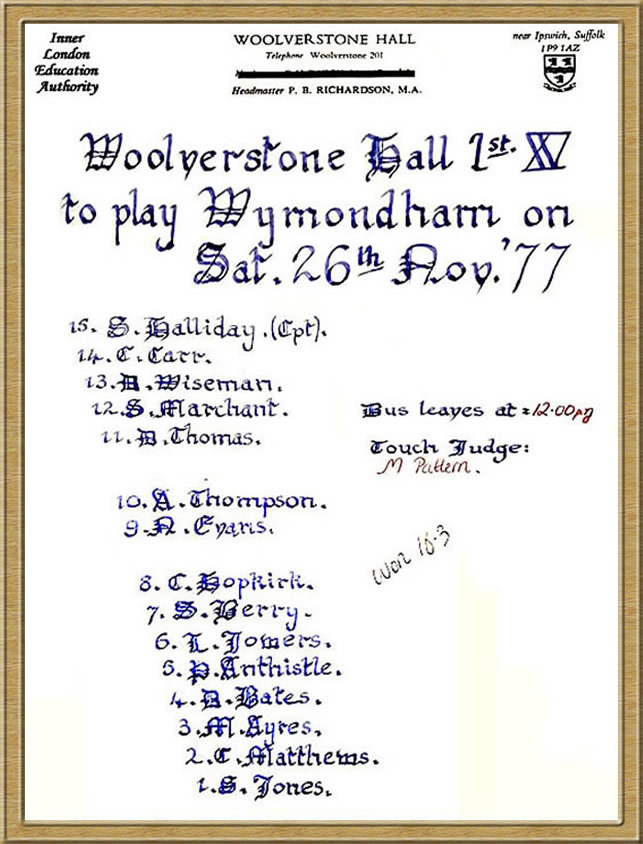 Inner
London
Education
Authority
WOOLVERSTONE HALL
Telephone Woolverstone 201
Headmaster P. B. RICHARDSON, M.A.
near Ipswich, Suffolk
IP9 1AZ
Woolverstone Hall 1st. XV
to play Wymondham on
Sat. 26th Nov. '77
15. S. Halliday. (Cpt).
14. C. Carr.
13. D. Wiseman.
12. S. Marchant.
11. D. Thomas.
Bus leaves at: 12.00pm
Touch Judge:
M Pattern.
10. A. Thompson.
9. N. Evans.
Won 18-3
8. C. Hopkirk.
7. S. Berry.
6. L. Jowers.
5. P. Anthistle.
4. D. Bates.
3. M. Ayres.
2. C. Matthews.
1. S. Jones.